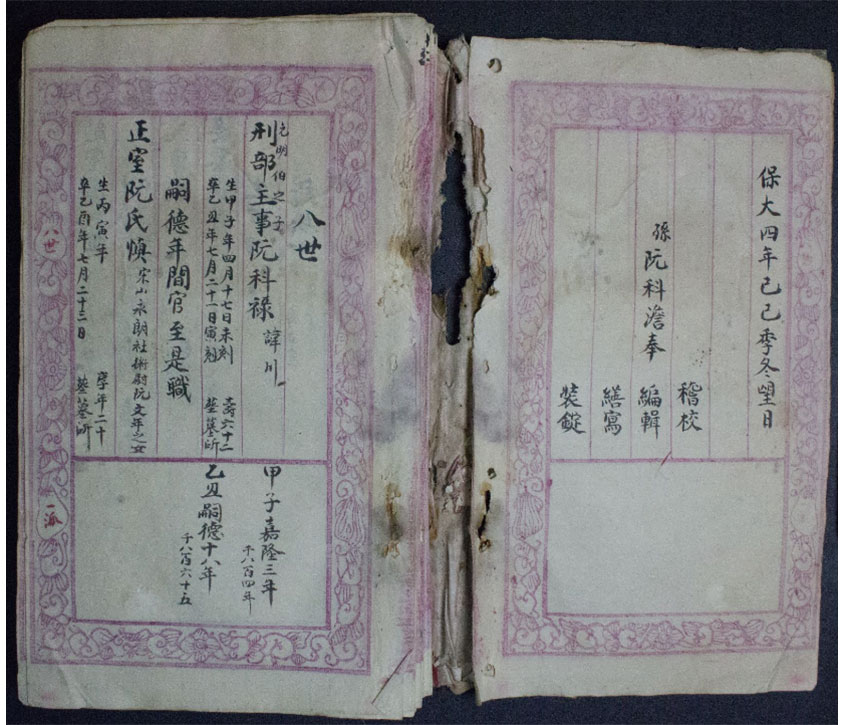 保大四年己巳季冬望日
孫阮科澹奉
稽校
編輯
繕寫
裝錠
八世
元明伯之子
刑部主事阮科祿 諱川
生甲子年四月十七日未刻 壽六十二
卒乙丑年七月二十一日寅刻 葬墓所
嗣德年間官至是職
正室阮氏慎 宋山永朗社衛尉阮文年之女
生丙寅年 享年二十
卒乙酉年七月二十三日 葬墓所
甲子嘉隆三年
千八百四年
乙丑嗣德十八年
千八百六十五
八世
一派